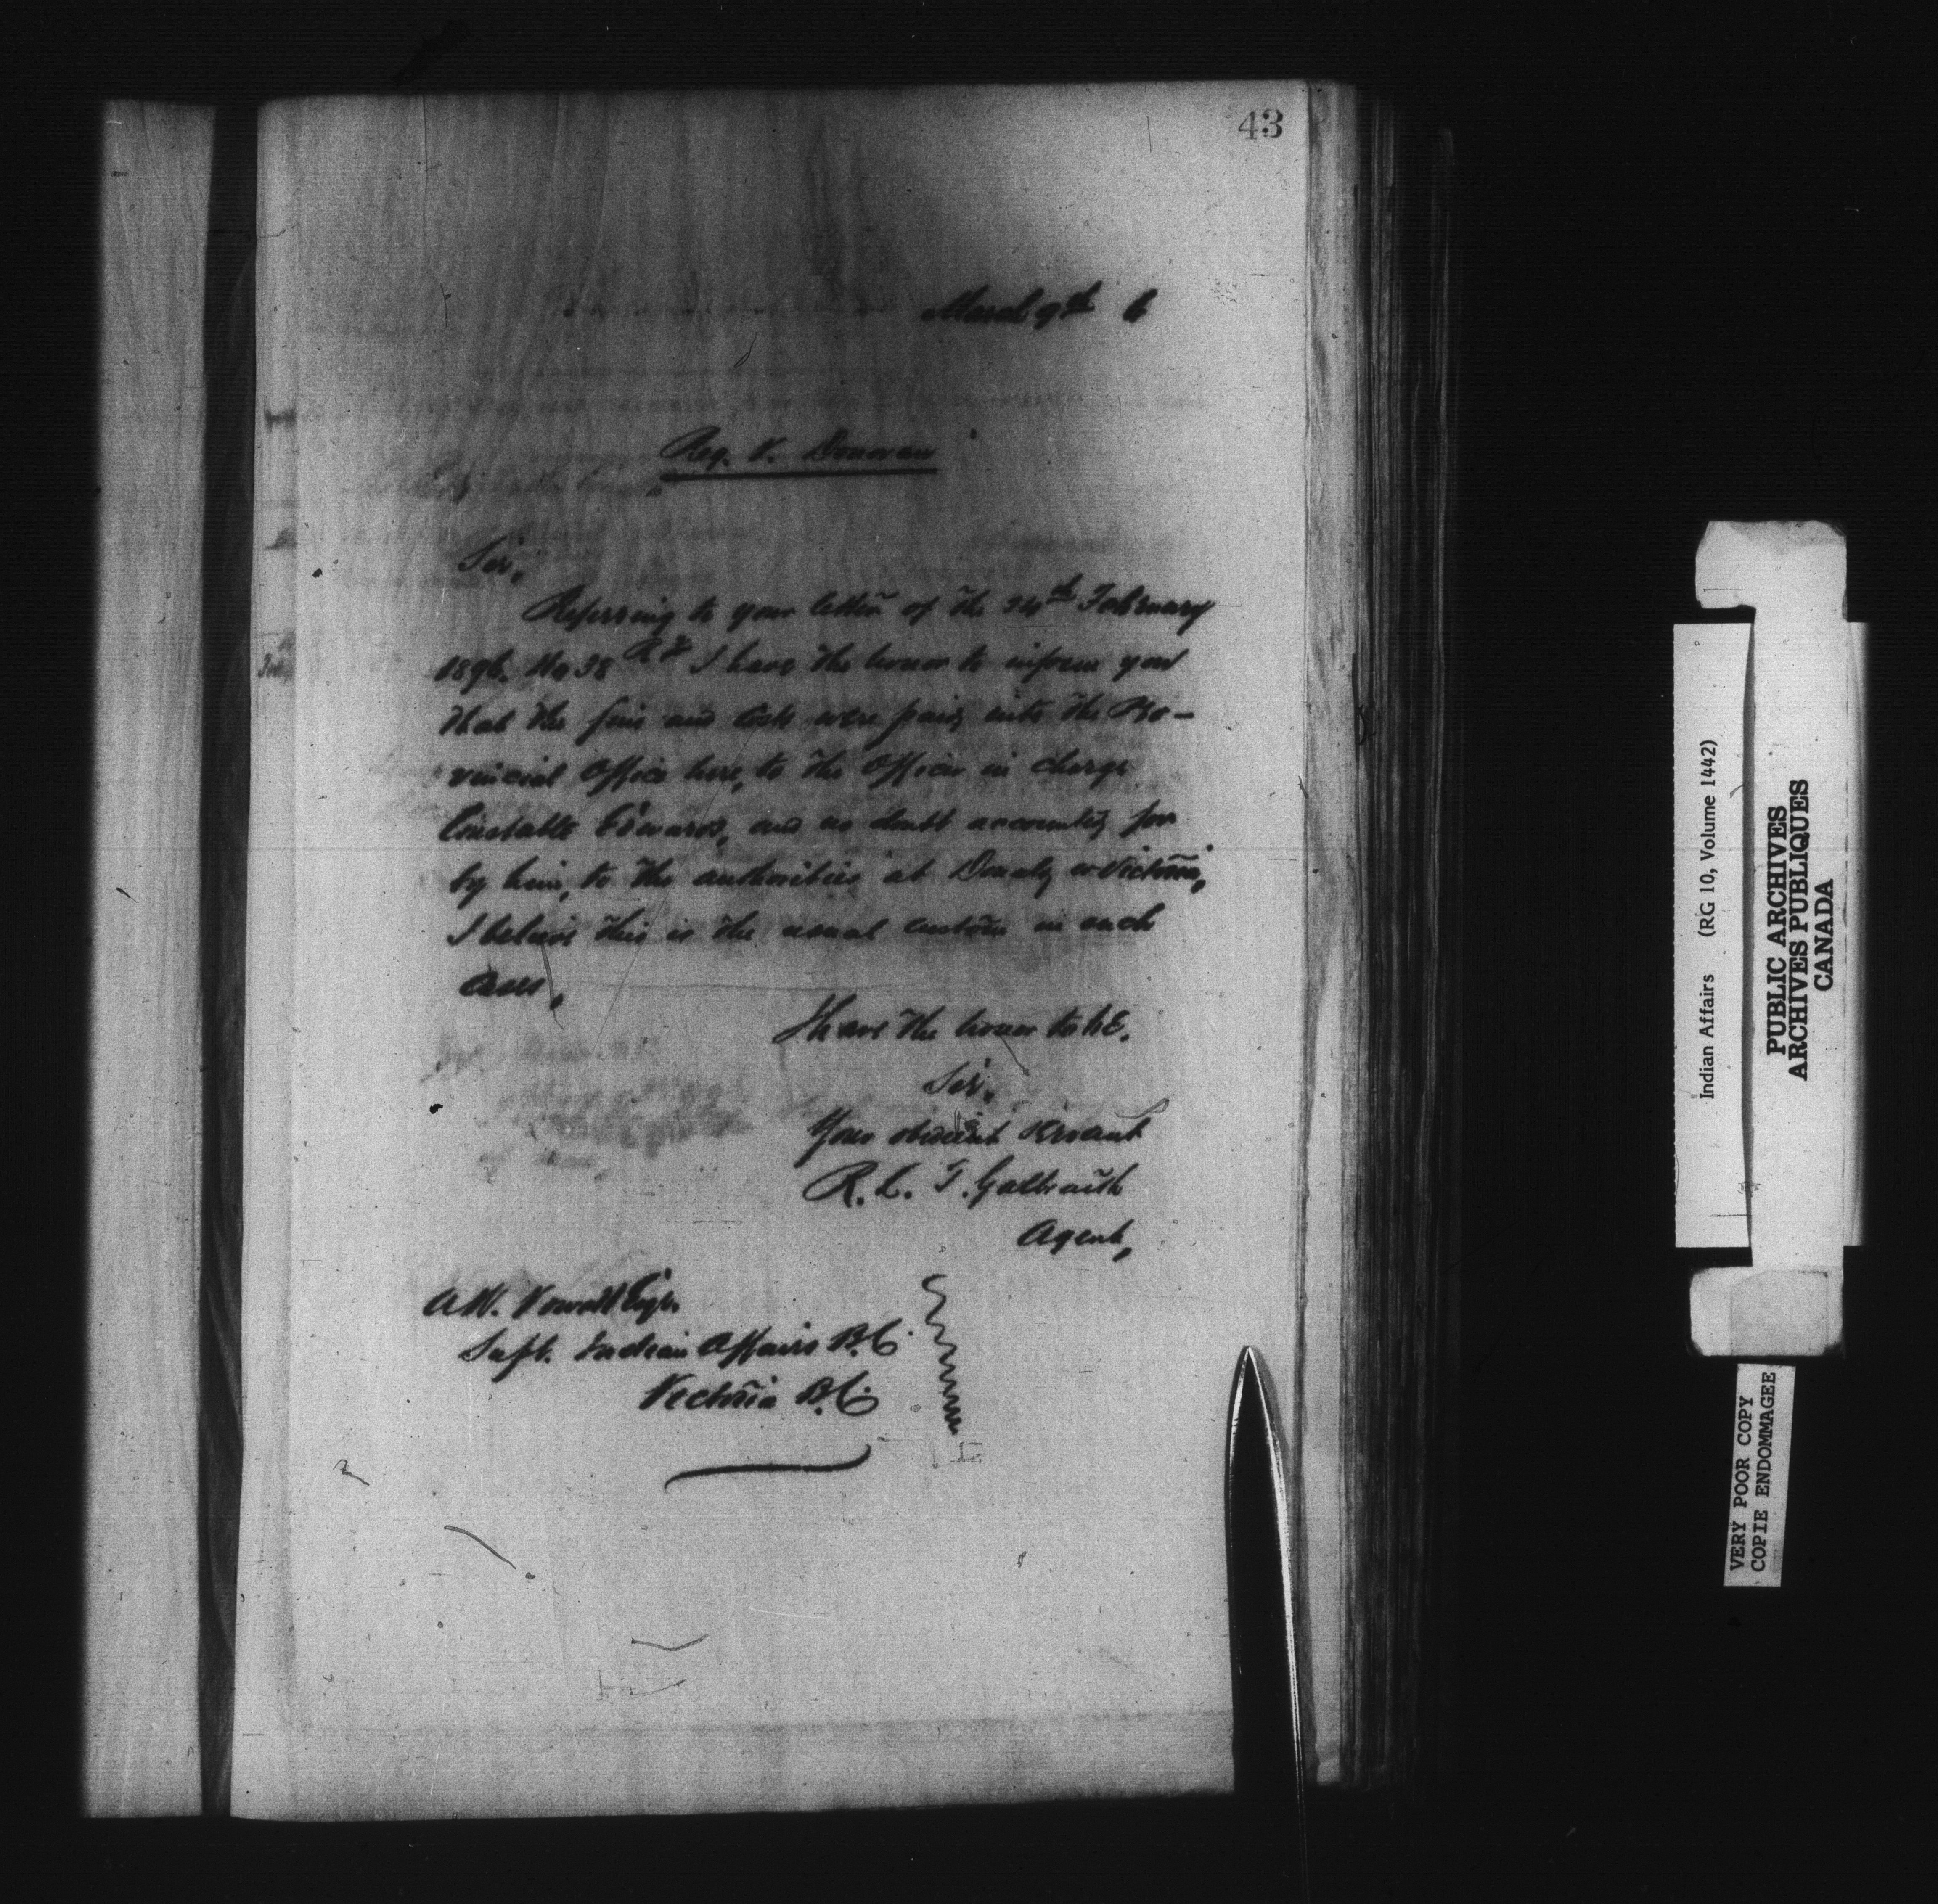 43
March 9th 6
Reg. V. Donovan
Sir,
Referring to your letter of the 24th February
1896. No 38 I have the honor to inform you
that the fine and costs were paid into the Pro-
vincial Office here, to the Officer in charge
Constable Edwards, and no doubt accounted for
by him, to the authorities at Donald or Victoria,
I believe this is the usual custom in such
cases,
I have the honor to be.
Sir,
Your obedient servant
R. L. T. Galbraith
Agent,
A.W. Vowell Esqr.
Supt. Indian Affairs B.C.
Victoria B.C.
Indian Affairs (RG 10, Volume 1442)
PUBLIC ARCHIVES
ARCHIVES PUBLIQUES
CANADA
VERY POOR COPY
COPIE ENDOMMAGEE